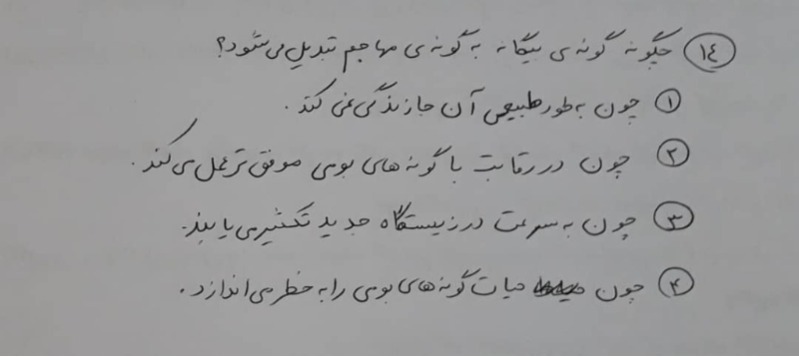 ۱٤ چگونه گونه‌ی بیگانه به گونه‌ی مهاجم تبدیل می‌شود؟
۱ چون به طور طبیعی آن جا زندگی نمی کند.
۲ چون در رقابت با گونه های بومی موفق تر عمل می کند.
۳ چون به سرعت در زیستگاه جدید تکثیر می یابند.
۴ چون حیات گونه های بومی را به خطر می اندازد.